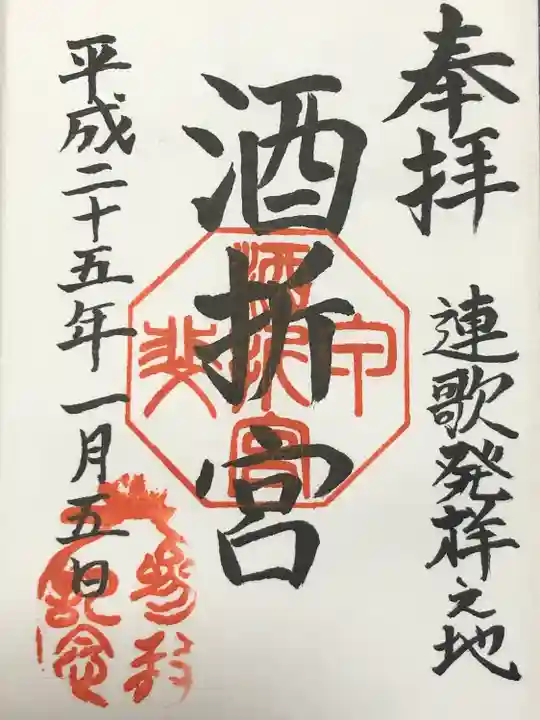 奉拝
連歌発祥之地
酒折宮
平成二十五年一月五日
甲斐
酒折宮
参拝
記念